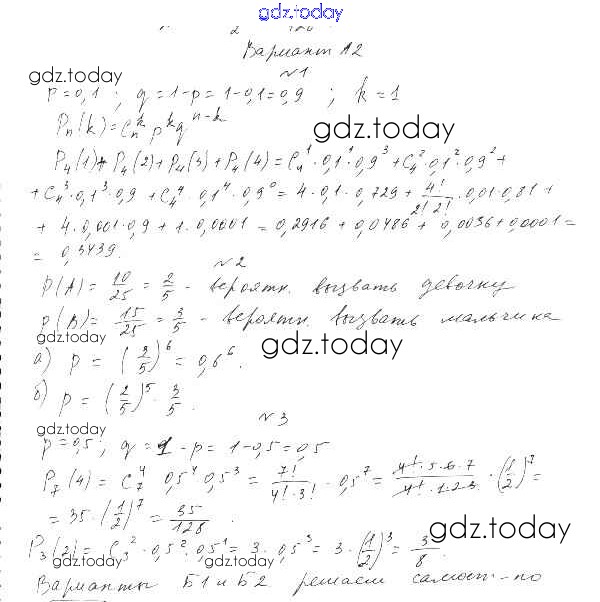 gdz.today
Вариант А2
gdz.today
№1
p=0,1 ; q=1-p=1-0,1=0,9 ; k=1
Pn(k)=Cn^k p^k q^n-k
gdz.today
P4(1)+P4(2)+P4(3)+P4(4)=C4^1·0,1^1·0,9^3+C4^2·0,1^2·0,9^2+
+C4^3·0,1^3·0,9+C4^4·0,1^4·0,9^0=4·0,1·0,729+4!/2!2!·0,01·0,81+
+4·0,001·0,9+1·0,0001=0,2916+0,0486+0,0036+0,0001=
=0,3439.
№2
P(A)=10/25=2/5 - вероятн. вызвать девочку
P(B)=15/25=3/5 - вероятн. вызвать мальчика
gdz.today
gdz.today
а) p=(3/5)^6=0,6^6.
б) p=(2/5)^5·3/5.
№3
gdz.today
p=0,5; q=1-p=1-0,5=0,5
P7(4)=C7^4 0,5^4 0,5^3=7!/4!·3!·0,5^7=4!·5·6·7/4!·1·2·3·(1/2)^7=
=35·(1/2)^7=35/128.
gdz.today
P3(2)=C3^2·0,5^2·0,5^1=3·0,5^3=3·(1/2)^3=3/8.
gdz.today
gdz.today
Варианты Б1 и Б2 решаем самост-но